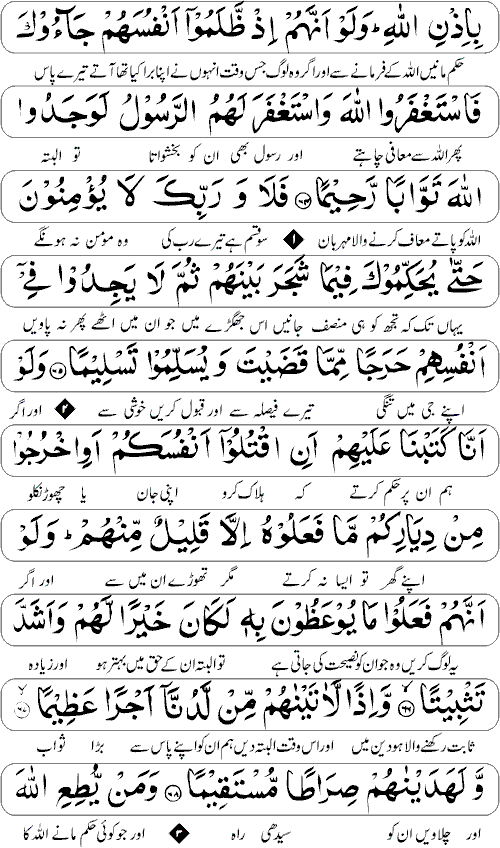 بِاِذْنِ اللّٰهِ ؕ وَلَوْ اَنَّهُمْ اِذْ ظَّلَمُوْۤا اَنْفُسَهُمْ جَآءُوْكَ
حکم مانیں اللہ کے فرمانے سے اور اگر وہ لوگ جس وقت انہوں نے اپنا برا کیا تھا آتے تیرے پاس
فَاسْتَغْفَرُوا اللّٰهَ وَاسْتَغْفَرَ لَهُمُ الرَّسُوْلُ لَوَجَدُوا
پھر اللہ سے معافی چاہتے اور رسول بھی ان کو بخشواتا تو البتہ
اللّٰهَ تَوَّابًا رَّحِيْمًا ﴿۶۴﴾ فَلَا وَ رَبِّكَ لَا يُؤْمِنُوْنَ
اللہ کو پاتے معاف کرنے والا مہربان ۱ سو قسم ہے تیرے رب کی وہ مؤمن نہ ہونگے
حَتّٰى يُحَكِّمُوْكَ فِيْمَا شَجَرَ بَيْنَهُمْ ثُمَّ لَا يَجِدُوْا فِىْۤ
یہاں تک کہ تجھ کو ہی منصف جانیں اس جھگڑے میں جو ان میں اٹھے پھر نہ پاویں
اَنْفُسِهِمْ حَرَجًا مِّمَّا قَضَيْتَ وَ يُسَلِّمُوْا تَسْلِيْمًا ﴿۶۵﴾ وَلَوْ
اپنے جی میں تنگی تیرے فیصلہ سے اور قبول کریں خوشی سے ۲ اور اگر
اَنَّا كَتَبْنَا عَلَيْهِمْ اَنِ اقْتُلُوْۤا اَنْفُسَكُمْ اَوِ اخْرُجُوْا
ہم ان پر حکم کرتے کہ ہلاک کرو اپنی جان یا چھوڑ نکلو
مِنْ دِيَارِكُمْ مَّا فَعَلُوْهُ اِلَّا قَلِيْلٌ مِّنْهُمْ ؕ وَلَوْ
اپنے گھر تو ایسا نہ کرتے مگر تھوڑے ان میں سے اور اگر
اَنَّهُمْ فَعَلُوْا مَا يُوْعَظُوْنَ بِهٖ لَكَانَ خَيْرًا لَّهُمْ وَاَشَدَّ
یہ لوگ کریں وہ جو ان کو نصیحت کی جاتی ہے تو البتہ ان کے حق میں بہتر ہو اور زیادہ
تَثْبِيْتًا ﴿۶۶﴾ وَّاِذًا لَّاٰتَيْنٰهُمْ مِّنْ لَّدُنَّاۤ اَجْرًا عَظِيْمًا ﴿۶۷﴾
ثابت رکھنے والا ہو دین میں اور اس وقت البتہ دیں ہم ان کو اپنے پاس سے بڑا ثواب
وَّ لَهَدَيْنٰهُمْ صِرَاطًا مُّسْتَقِيْمًا ﴿۶۸﴾ وَمَنْ يُّطِعِ اللّٰهَ
اور چلاویں ان کو سیدھی راہ ۳ اور جو کوئی حکم مانے اللہ کا